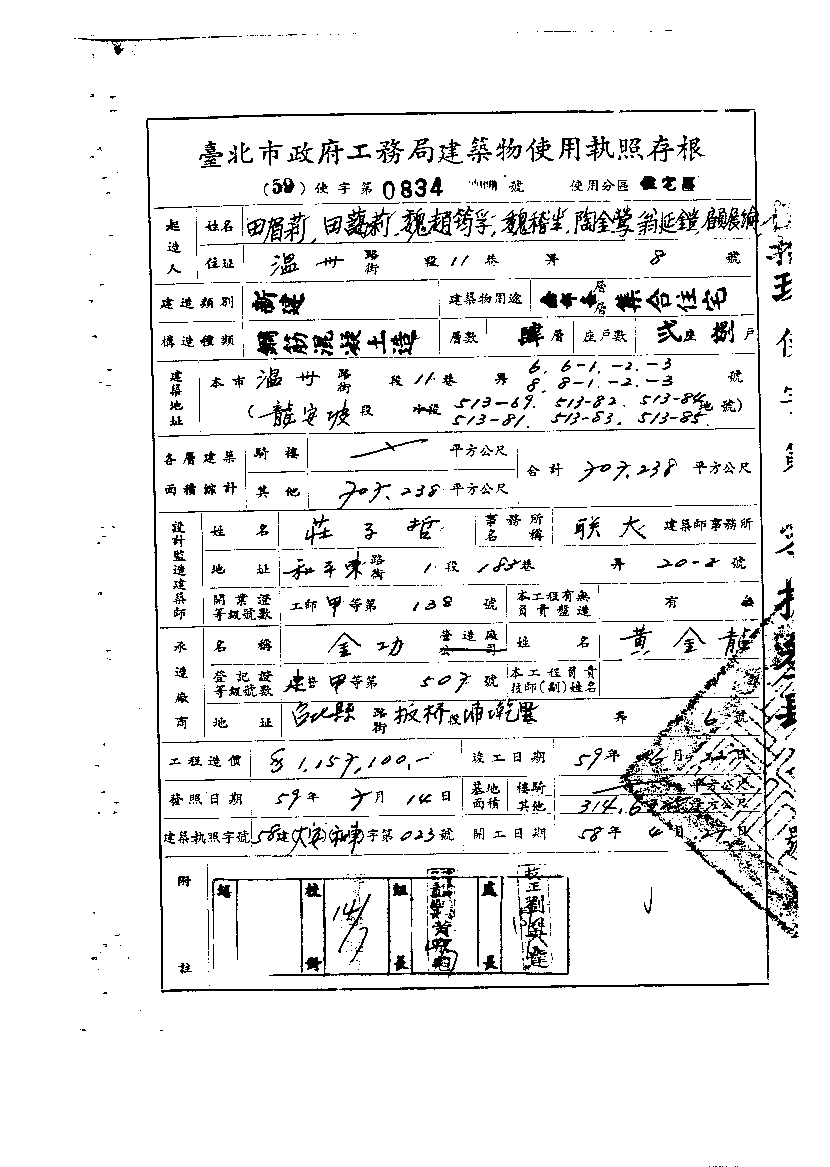 臺北市政府工務局建築物使用執照存根
(59)使字第0834號 使用分區 住宅區
起造人 姓名 田眉莉、田藹莉、魏趙筠孚、魏稽生、陶金鶯、翁延鎧、顧展綸
住址 溫州路街 段11巷 弄 8 號
建造類別 新建 建築物用途 層層集合住宅
構造種類 鋼筋混凝土造 層數 肆層 座戶數 弍座捌戶
建築地址 本市溫州路街 段11巷 弄 6.6-1.-2.-3 8.8-1.-2.-3 號
(龍安坡段 小段 513-69. 513-82. 513-84 513-81. 513-83. 513-85. 地號)
各層建築面積綜計 騎樓 平方公尺 合計 707.238 平方公尺
其他 707.238 平方公尺
設計監造建築師 姓名 莊子哲 事務所名稱 联大 建築師事務所
地址 和平東路街 1段 183巷 弄 20-2 號
開業證等級號數 工師甲等第 138 號 本工程有無負責監造 有
承造廠商 名稱 金功 營造廠公司 姓名 黃金龍
登記證等級號數 建營甲等第 507 號 本工程負責技師(副)姓名
地址 台北縣路街板桥段埔墘 弄 6 號
工程造價 1,157,100.- 竣工日期 59年 月 22日
發照日期 59年7月14日 基地面積 樓騎 平方公尺
其他 314.6 平方公尺
建築執照字號 58建(大安)(和東)字第023號 開工日期 58年4月27日
附註
校對 14/7 組長 處長 技正劉